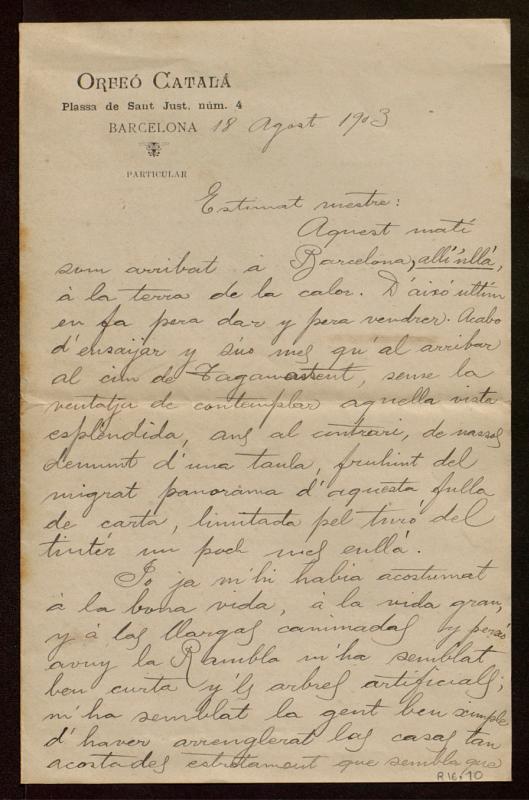 ORFEÓ CATALÁ
Plassa de Sant Just, núm. 4
BARCELONA 18 Agost 1903
PARTICULAR
Estimat mestre:
Aquest matí
som arribat á Barcelona, allí 'nllá,
á la terra de la calor. D'aixó ultim
en fa pera dar y pera vendrer. Acabo
d'ensaijar y súo mes qu'al arribar
al cim de Tagamanent, sense la
ventatja de contemplar aquella vista
esplèndida, ans al contrari, de nassos
demunt d'una taula, fruhint del
migrat panorama d'aquesta fulla
de carta, limitada pel turó del
tintér un poch mes enllá.
Jo ja m'hi habia acostumat
á la bona vida, á la vida gran,
y á las llargas caminadas y per xó
avuy la Rambla m'ha semblat
ben curta y 'ls arbres artificials;
m'ha semblat la gent ben ximple
d'haver arrenglerat las casas tan
acostades estretament que sembla que
R16.10